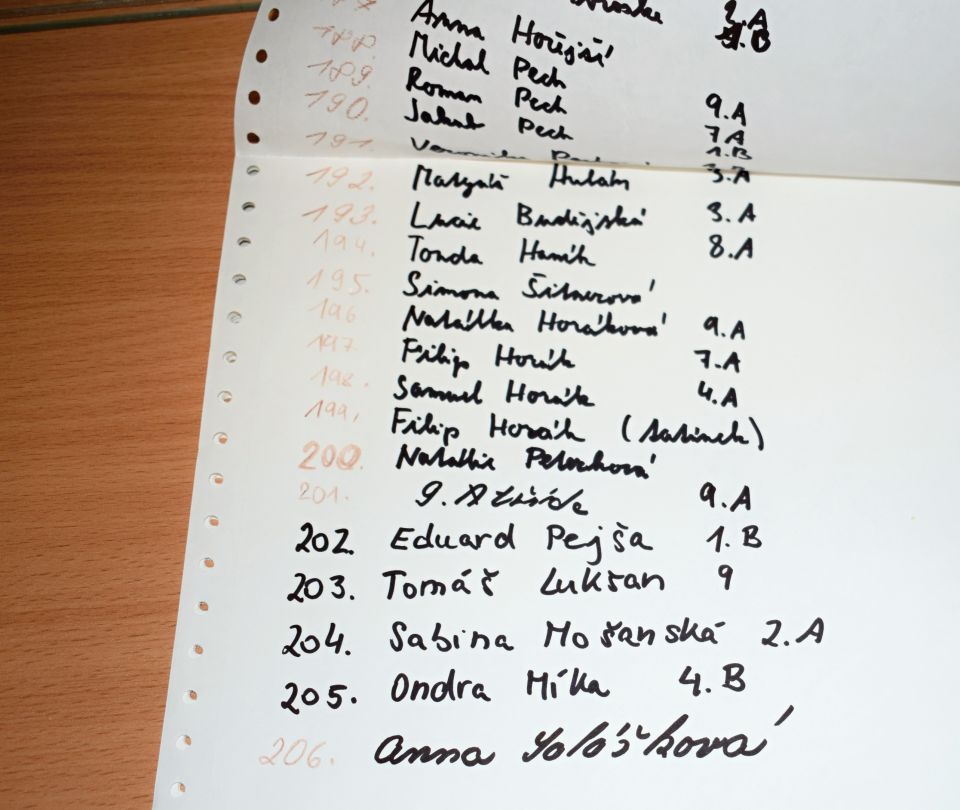 2.A
188. Anna Hořejší
189. Michal Pech
190. Roman Pech 9.A
Jakub Pech 7.A
191. 1.B
192. Matyáš 3.A
193. Lucie Budějská 3.A
194. Tonda Haník 8.A
195. Simona
196. Natálka Horáková 9.A
197. Filip Horák 7.A
198. Samuel Horák 4.A
199. Filip Horák (tatínek)
200. Natálie
201. 9.A třída 9.A
202. Eduard Pejša 1.B
203. Tomáš Lukšan 9
204. Sabina Mošanská 2.A
205. Ondra Míka 4.B
206. Anna